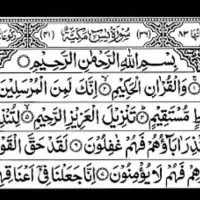 تها ٨٣ سُوْرَةُ يٰسٓ مَكِّيَّةٌ (٤١)
بِسْمِ اللّٰهِ الرَّحْمٰنِ الرَّحِيْمِ
وَالْقُرْاٰنِ الْحَكِيْمِ ۝ اِنَّكَ لَمِنَ الْمُرْسَلِيْنَ
طٍ مُّسْتَقِيْمٍ ۝ تَنْزِيْلَ الْعَزِيْزِ الرَّحِيْمِ ۝ لِتُنْذِ
ذِرَ اٰبَآؤُهُمْ فَهُمْ غٰفِلُوْنَ ۝ لَقَدْ حَقَّ الْقَوْ
هِمْ فَهُمْ لَا يُؤْمِنُوْنَ ۝ اِنَّا جَعَلْنَا فِيْٓ اَعْنَاقِ